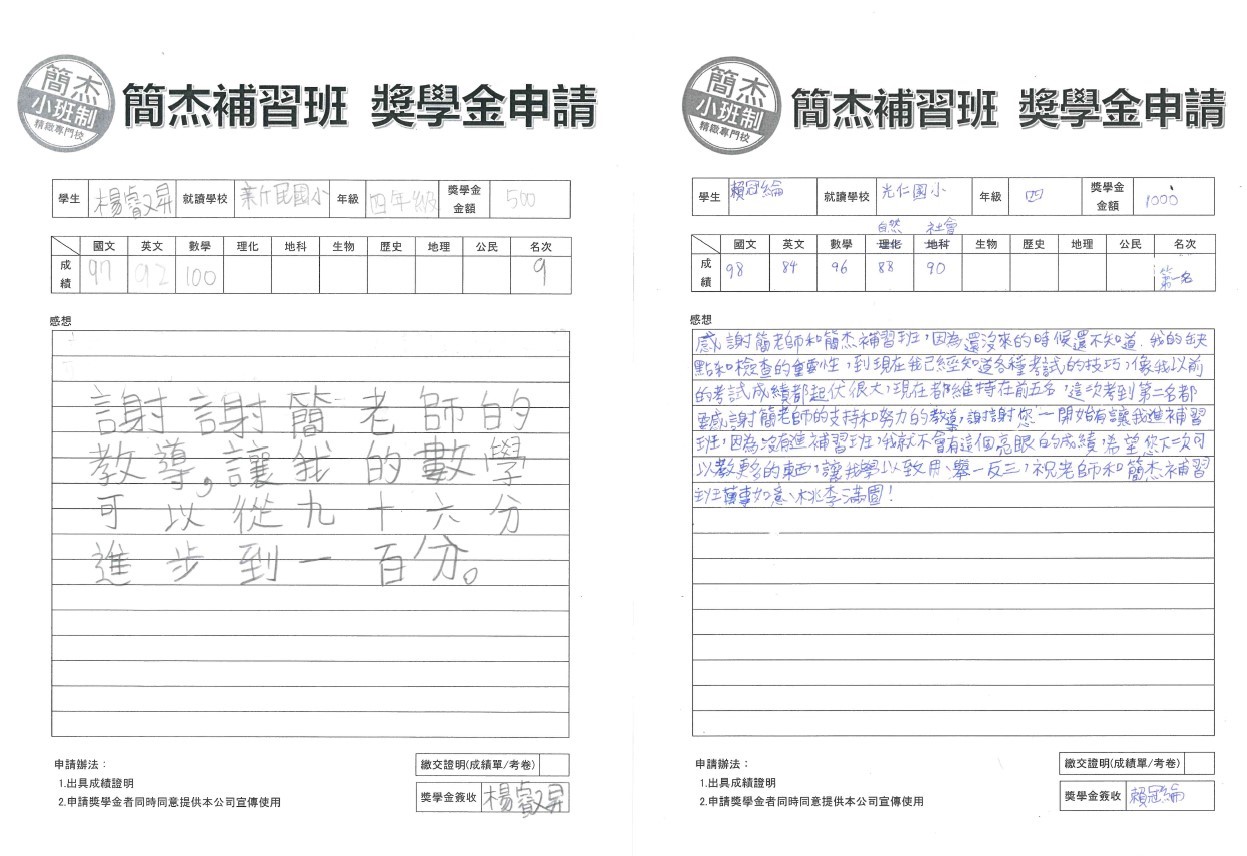 簡杰
小班制
精緻專門校
簡杰補習班 獎學金申請
學生 楊睿又昇 就讀學校 新民國小 年級 四年級 獎學金金額 500
國文 英文 數學 理化 地科 生物 歷史 地理 公民 名次
成績 97 92 100 9
感想
謝謝簡老師的
教導,讓我的數學
可以從九十六分
進步到一百分。
申請辦法:
1.出具成績證明
2.申請獎學金者同時同意提供本公司宣傳使用
繳交證明(成績單/考卷)
獎學金簽收 楊睿又昇
簡杰
小班制
精緻專門校
簡杰補習班 獎學金申請
學生 賴冠綸 就讀學校 光仁國小 年級 四 獎學金金額 1000
自然 社會
國文 英文 數學 理化 地科 生物 歷史 地理 公民 名次
成績 98 84 96 88 90 第一名
感想
感謝簡老師和簡杰補習班,因為還沒來的時候還不知道,我的缺
點和檢查的重要性,到現在我已經知道各種考試的技巧,像我以前
的考試成績都起伏很大,現在都維持在前五名,這次考到第一名都
要感謝簡老師的支持和努力的教導,謝謝您一開始有讓我進補習
班,因為沒有進補習班,我就不會有這個亮眼的成績,希望您下次可
以教更多的東西,讓我學以致用、舉一反三,祝老師和簡杰補習
班萬事如意、桃李滿園!
申請辦法:
1.出具成績證明
2.申請獎學金者同時同意提供本公司宣傳使用
繳交證明(成績單/考卷)
獎學金簽收 賴冠綸